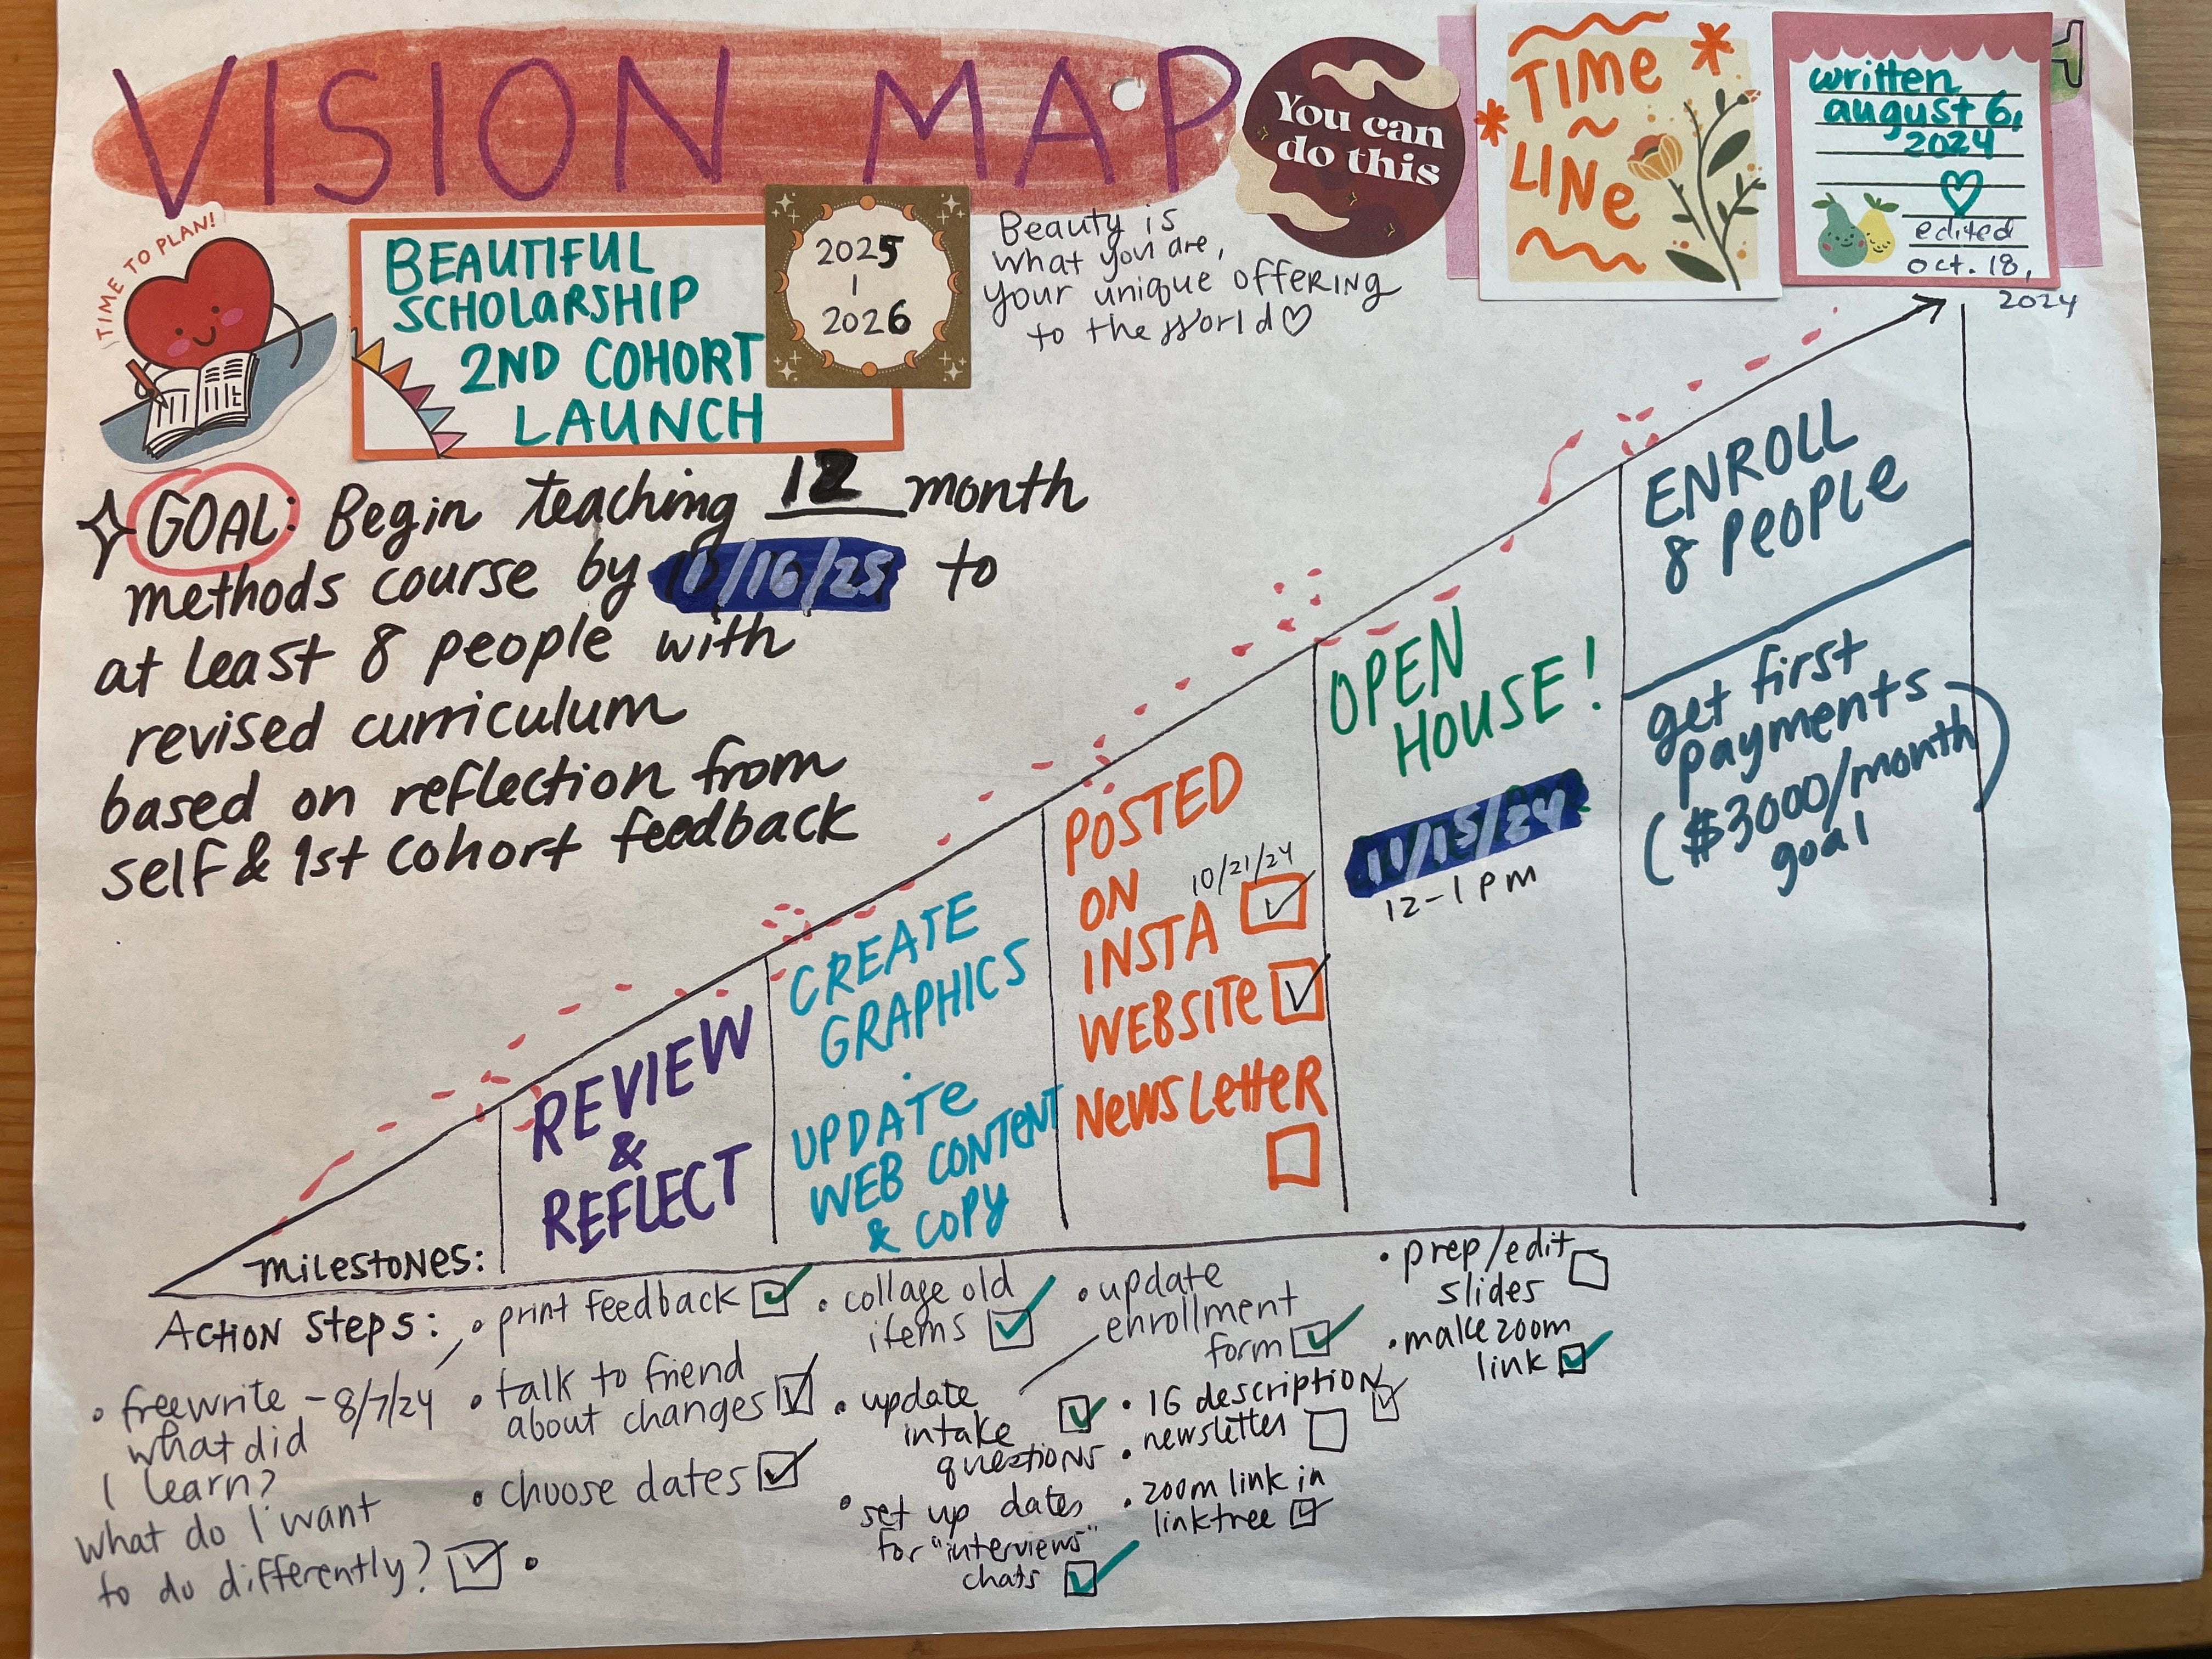 VISION MAP
You can
do this
TIME
~
LINe
written
august 6,
2024
edited
oct. 18,
2024
TIME TO PLAN!
BEAUTIFUL
SCHOLARSHIP
2ND COHORT
LAUNCH
2025
2026
Beauty is
what you are,
your unique offering
to the world ♡
GOAL: Begin teaching 12 month
methods course by 1/16/25 to
at least 8 people with
revised curriculum
based on reflection from
self & 1st cohort feedback
milestones:
REVIEW
&
REFLECT
CREATE
GRAPHICS
UPDATE
WEB CONTENT
& COPY
POSTED
ON
INSTA
10/21/24
WEBSITE
NewsLetteR
OPEN
HOUSE!
11/15/24
12-1 pm
ENROLL
8 PEOPLe
get first
payments
($3000/month)
goal
Action Steps:
• freewrite - 8/7/24
what did
I learn?
what do I want
to do differently?
• print feedback
• talk to friend
about changes
• choose dates
•
• collage old
items
• update
intake
questions
• set up dates
for "interviews"
chats
• update
enrollment
form
• IG description
• newsletter
• zoom link in
linktree
• prep/edit
slides
• make zoom
link